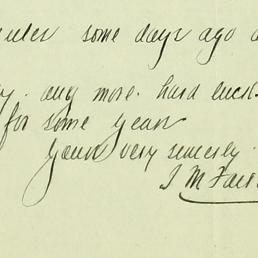 some days ago a
any more. hard luck.
for some years
Yours very sincerely.
J M